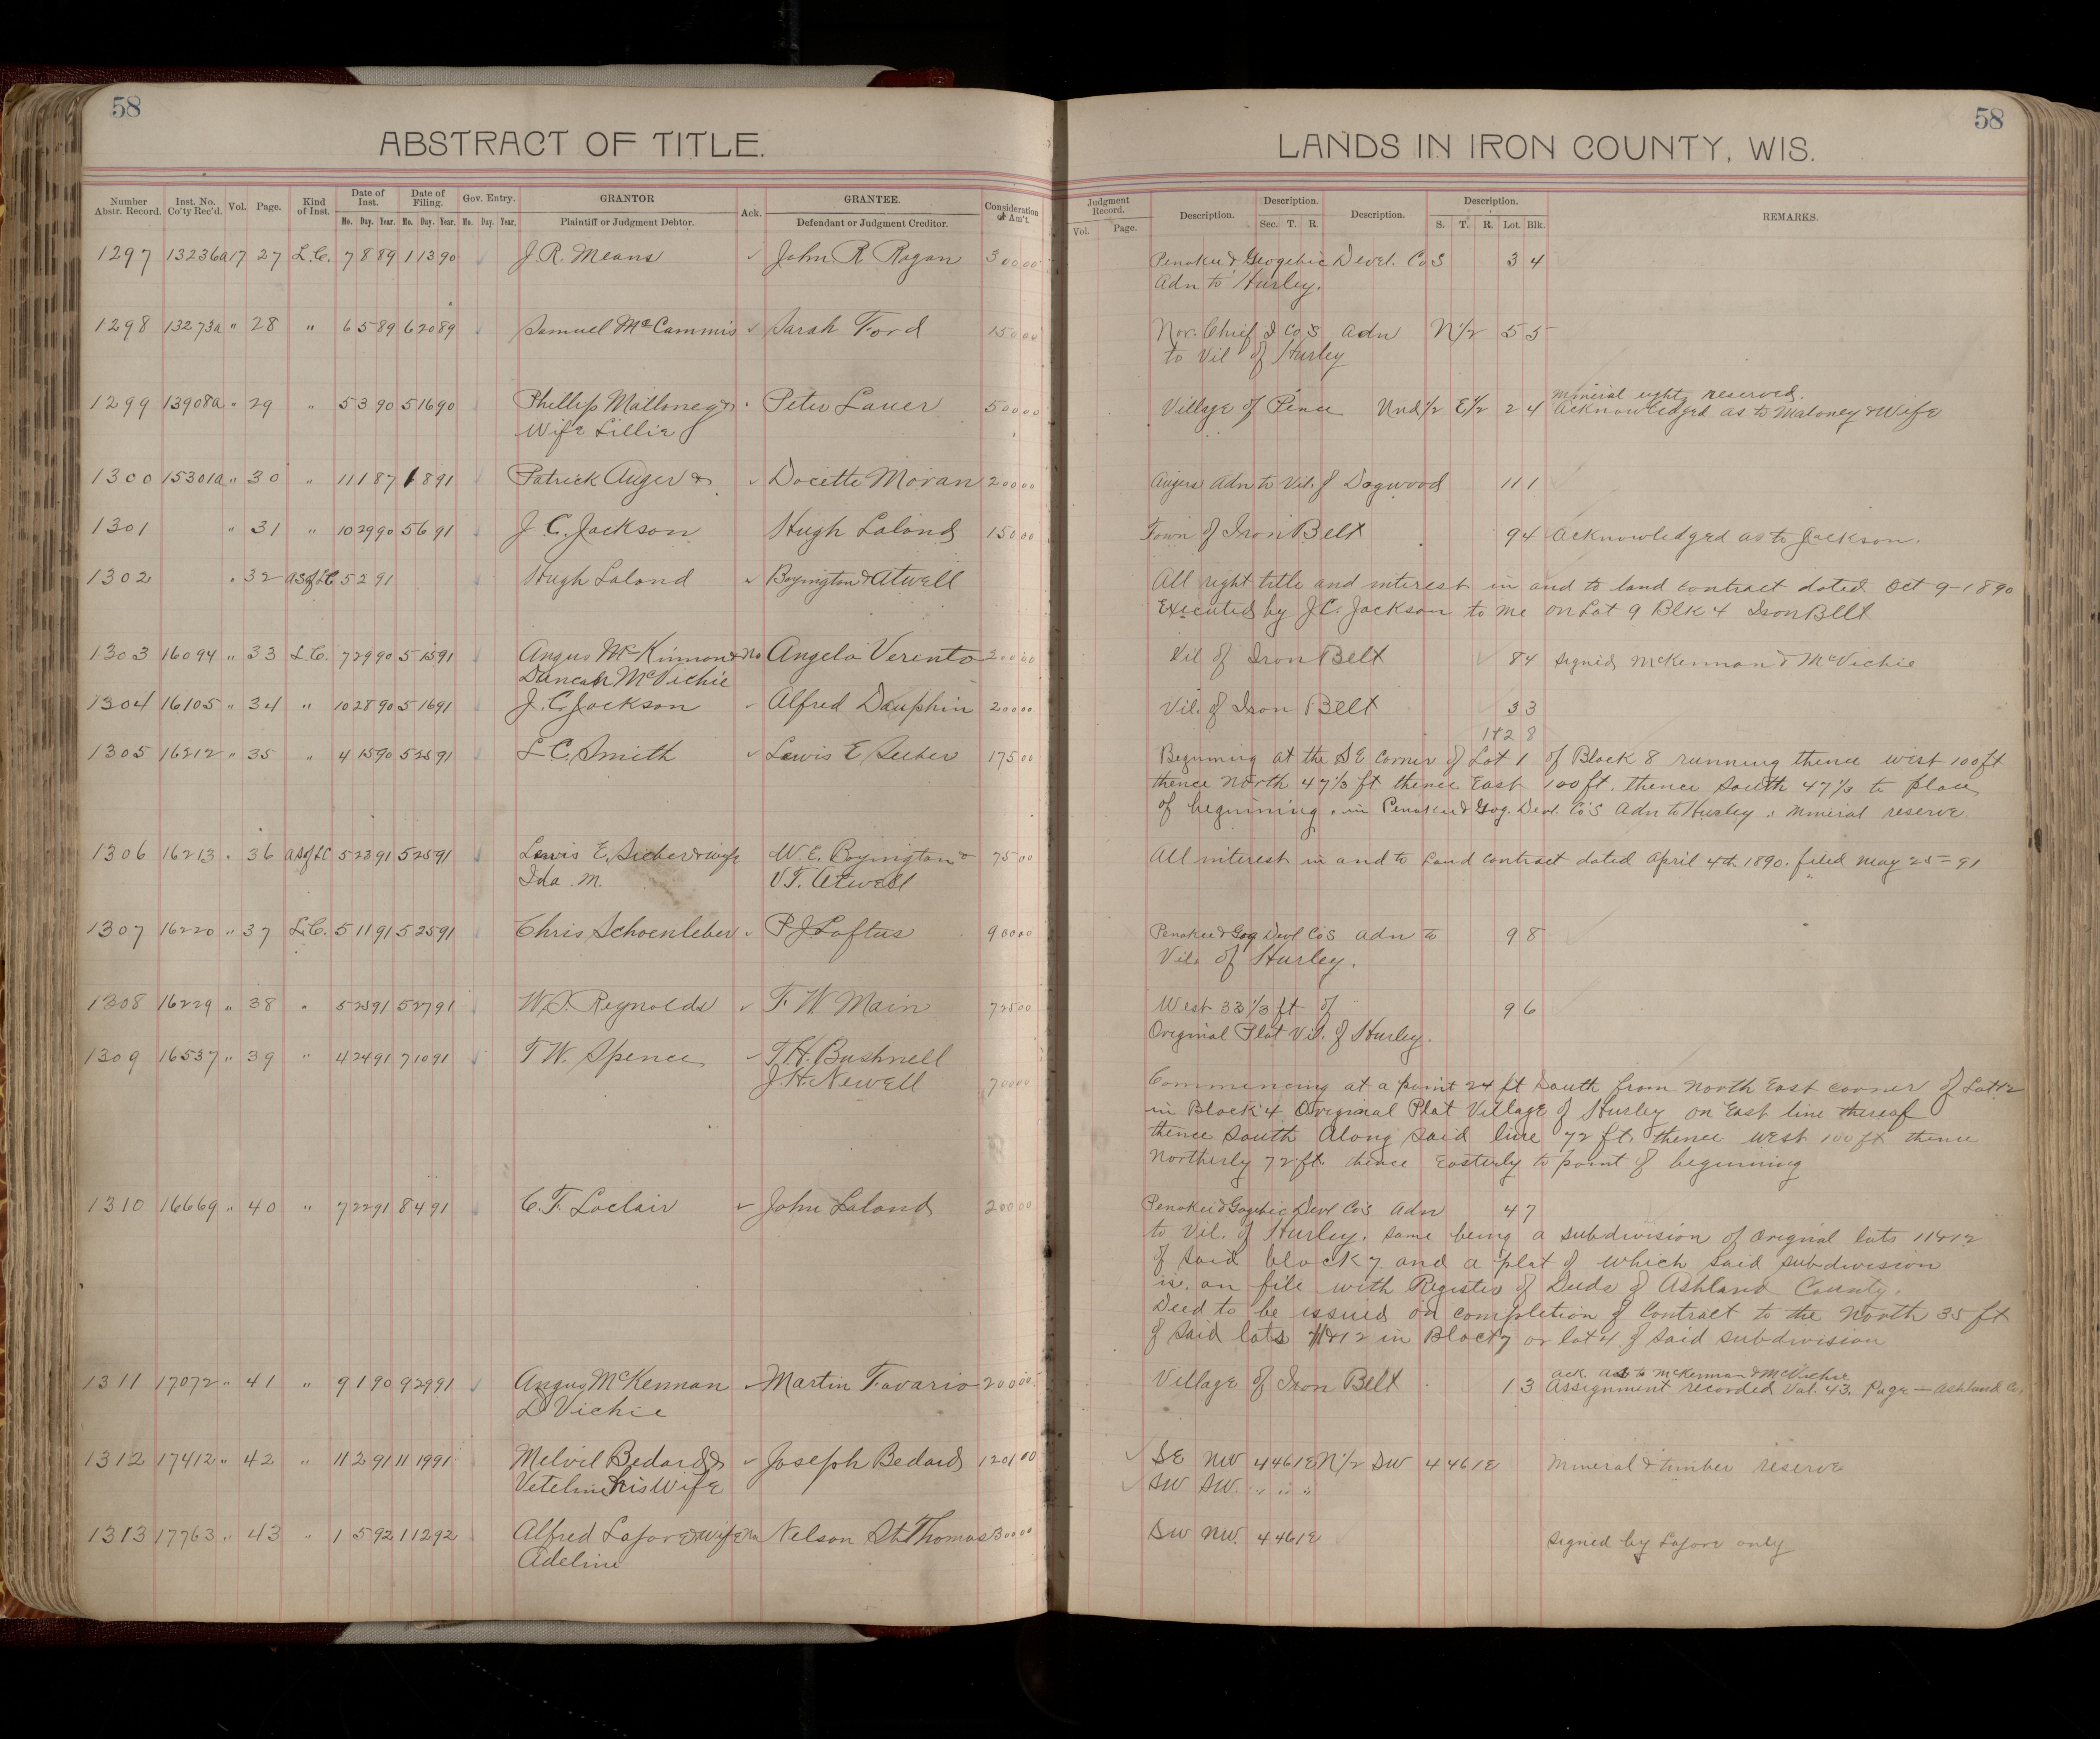 58
ABSTRACT OF TITLE.
Number Abstr. Record. Inst. No. Co'ty Rec'd. Vol. Page. Kind of Inst. Date of Inst. Date of Filing. Gov. Entry. GRANTOR Ack. GRANTEE. Consideration or Am't.
Mo. Day. Year. Mo. Day. Year. Mo. Day. Year. Plaintiff or Judgment Debtor. Defendant or Judgment Creditor.
1297 13236a 17 27 L.C. 7 8 89 1 13 90 J.R. Means ✓ John R Ragan 300 00
1298 13273a " 28 " 6 5 89 6 20 89 Samuel McCammis ✓ Sarah Ford 150 00
1299 13908a " 29 " 5 3 90 5 16 90 Phillip Malloney & Peter Lauer 500 00
Wife Lillie
1300 15301a " 30 " 11 1 87 1 8 91 Patrick Auger & ✓ Docette Moran 200 00
1301 " 31 " 10 29 90 5 6 91 J.C. Jackson Hugh Lalond 150 00
1302 " 32 as of LC 5 2 91 Hugh Lalond ✓ Boyington & Atwell
1303 16094 " 33 L.C. 7 29 90 5 15 91 Angus McKinnon & No Angelo Verento 200 00
Duncan McVichie
1304 16105 " 34 " 10 28 90 5 16 91 J.C. Jackson ✓ Alfred Dauphin 200 00
1305 16212 " 35 " 4 15 90 5 25 91 L C. Smith ✓ Lewis E Seeber 175 00
1306 16213 " 36 as of LC 5 23 91 5 25 91 Lewis E. Sieber & wife W.E. Boyington & 75 00
Ida M. V.T. Atwell
1307 16220 " 37 L.C. 5 11 91 5 25 91 Chris Schoenleber P J Loftus 900 00
1308 16229 " 38 " 5 25 91 5 27 91 W.S. Reynolds ✓ F. W Main 725 00
1309 16537 " 39 " 4 24 91 7 10 91 T W. Spence ✓ T.H. Bushnell
J.H. Newell 700 00
1310 16669 " 40 " 7 22 91 8 4 91 C.F. Loclair ✓ John Lalond 200 00
1311 17072 " 41 " 9 1 90 9 29 91 Angus McKennan ✓ Martin Favario 200 00
D Vichie
1312 17412 " 42 " 11 2 91 11 19 91 Melvil Bedard & ✓ Joseph Bedard 1201 00
Veteline his Wife
1313 17763 " 43 " 1 5 92 1 12 92 Alfred Lafore & Wife No Nelson St Thomas 300 00
Adeline
58
LANDS IN IRON COUNTY, WIS.
Judgment Record. Description. Description. Description. Description. REMARKS.
Vol. Page. Sec. T. R. S. T. R. Lot. Blk.
Penokee & Geogebic Devel. Co S 3 4
Adn to Hurley.
Nor. Chief I Co S adn N 1/2 5 5
to Vil of Hurley
Mineral rights reserved.
Village of Pence Und 1/2 E 1/2 2 4 Acknowledged as to Maloney & Wife
Augers Adn to Vil. of Dogwood 11 1
Town of Iron Belt 9 4 Acknowledged as to Jackson.
All right title and interest in and to land contract dated Oct 9-1890
Executed by J.C. Jackson to me on Lot 9 Blk 4 Iron Belt
Vil of Iron Belt ✓ 8 4 signed McKennan & McVichie
Vil. of Iron Belt 3 3
1 & 2 8
Beginning at the S E Corner of Lot 1 of Block 8 running thence west 100 ft
thence North 47 1/3 ft thence East 100 ft. thence South 47 1/3 to place
of beginning. in Penokee & Gog. Devl. Co's Adn to Hurley. mineral reserve.
All interest in and to Land Contract dated April 4th 1890. filed May 25=91
Penokee & Gog Devl Co's adn to 9 8
Vil. of Hurley.
West 33 1/3 ft of 9 6
Original Plat Vil. of Hurley.
Commencing at a point 24 ft South from North East corner of Lot 12
in Block 4 Original Plat Village of Hurley on East line thereof
thence South Along said line 72 ft. thence West 100 ft thence
Northerly 72 ft thence Easterly to point of beginning
Penokee & Gogebic Devl Co's Adn 4 7
to Vil. of Hurley. same being a subdivision of Original lots 11 & 12
of said block 7 and a plat of which said subdivision
is on file with Register of Deeds of Ashland County.
Deed to be issued on completion of Contract to the North 35 ft
of said lots 11 & 12 in Block 7 or lot 4 of said subdivision
ack. as to McKennan & McVichie
Village of Iron Belt 1 3 Assignment recorded Vol. 43. Page — Ashland Co.
✓ SE NW 4 46 1E N 1/2 SW 4 46 1E Mineral & timber reserve
✓ SW SW. " " "
SW NW. 4 46 1E signed by Lafore only